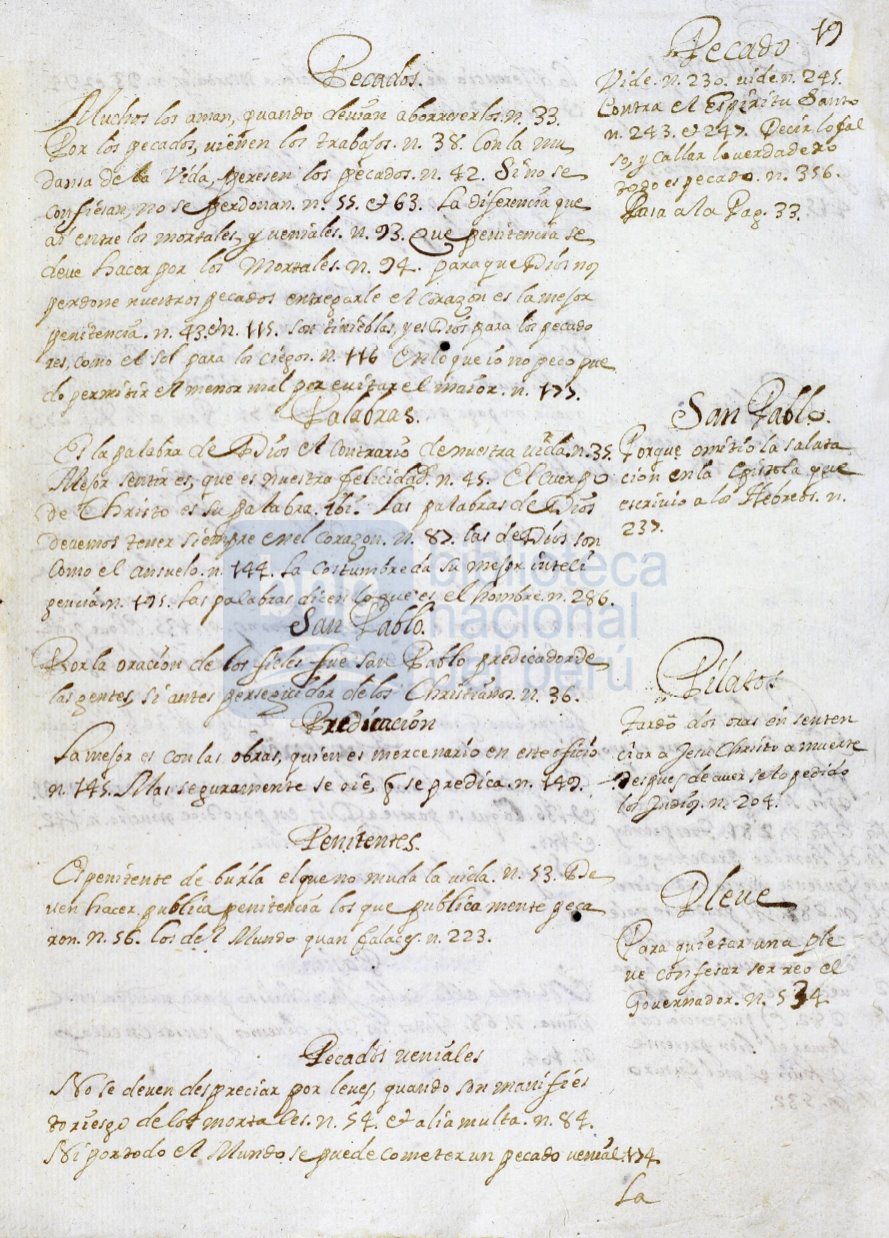 19
Pecados.
Muchos los aman, quando devian aborreverlos. n. 33.
Por los pecados, vienen los trabajos. n. 38. Con la mu
dansa de la Vida, peresen los pecados. n. 42. Si no se
confiesan, no se perdonan. n. 55. et 63. La diferencia que
ai entre los mortales, y veniales. n. 93. Que penitencia se
deve hacer por los Mortales. n. 94. para que Dios nos
perdone nuestros pecados entregarle el corazon es la mejor
penitencia. n. 43. et n. 115. son tinieblas, y es Dios para los pecado
res, como el sol para los ciegos. n. 116 En lo que io no peco pue
do permitir el menor mal por evitar el maior. n. 175.
Palabras.
Es la palabra de Dios el contrario de nuestra vida. n. 35.
Mejor sentir es, que es nuestra felicidad. n. 45. El cuerpo
de Christo es su palabra. ibi. Las palabras de Dios
devemos tener siempre en el corazon. n. 87. las de Dios son
como el ansuelo. n. 144. La costumbre da su mejor inteli
gencia. n. 195. Las palabras dicen lo que es el hombre. n. 286.
San Pablo.
Por la oracion de los fieles fue san Pablo predicador de
las gentes, si antes perseguidor de los Christianos. n. 36.
Predicación
La mejor es con las obras, quien es mercenario en este oficio
n. 145. Mas seguramente se oie, q se predica. n. 149.
Penitentes.
Es penitente de burla el que no muda la vida. n. 53. De
ven hacer publica penitencia los que publica mente peca
ron. n. 56. los del Mundo quan falaces. n. 223.
Pecados veniales
No se deven despreciar por leves, quando son manifies
to riesgo de los mortales. n. 54. et alia multa. n. 84.
Ni por todo el Mundo se puede cometer un pecado venial. 174
La
Pecado
Vide. n. 230. vide n. 245.
Contra el Espiritu Santo
n. 243. et 247. Decir lo fal
so, y callar lo verdadero
todo es pecado. n. 356.
Pasa a la Pag. 33.
San Pablo.
Porque omitio la saluta
cion en la Epistola que
escrivio a los Hebreos. n.
237.
Pilatos
Tardó dos oras en senten
ciar a Jesu Christo a muerte
despues de aver se lo pedido
los Judios. n. 204.
Pleve
Para quietar una ple
ve confesar ser reo el
Governador. n. 534.
biblioteca
nacional
del perú